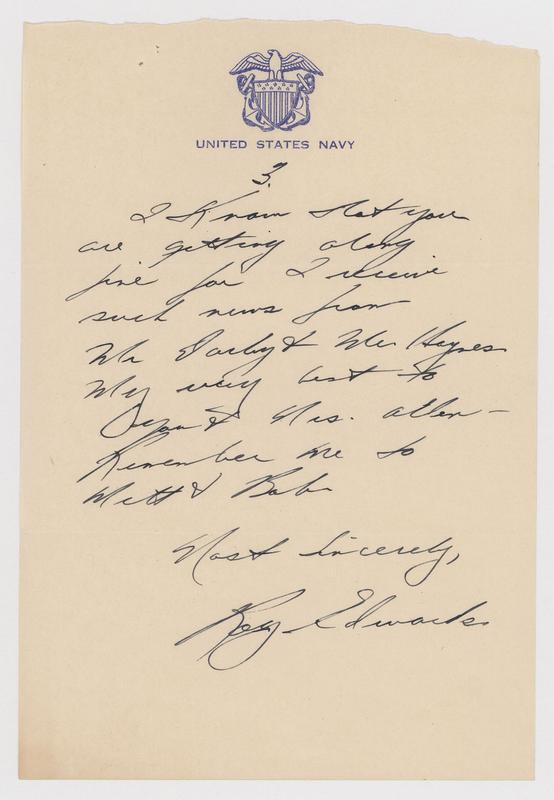 UNITED STATES NAVY
3.
I Know that you
are getting along
fine for I receive
such news from
Mr Darby & Mr Haynes
My very best to
you & Mrs. Allen -
Remember me to
Mutt & Bob.
Most Sincerely,
Roy Edwards